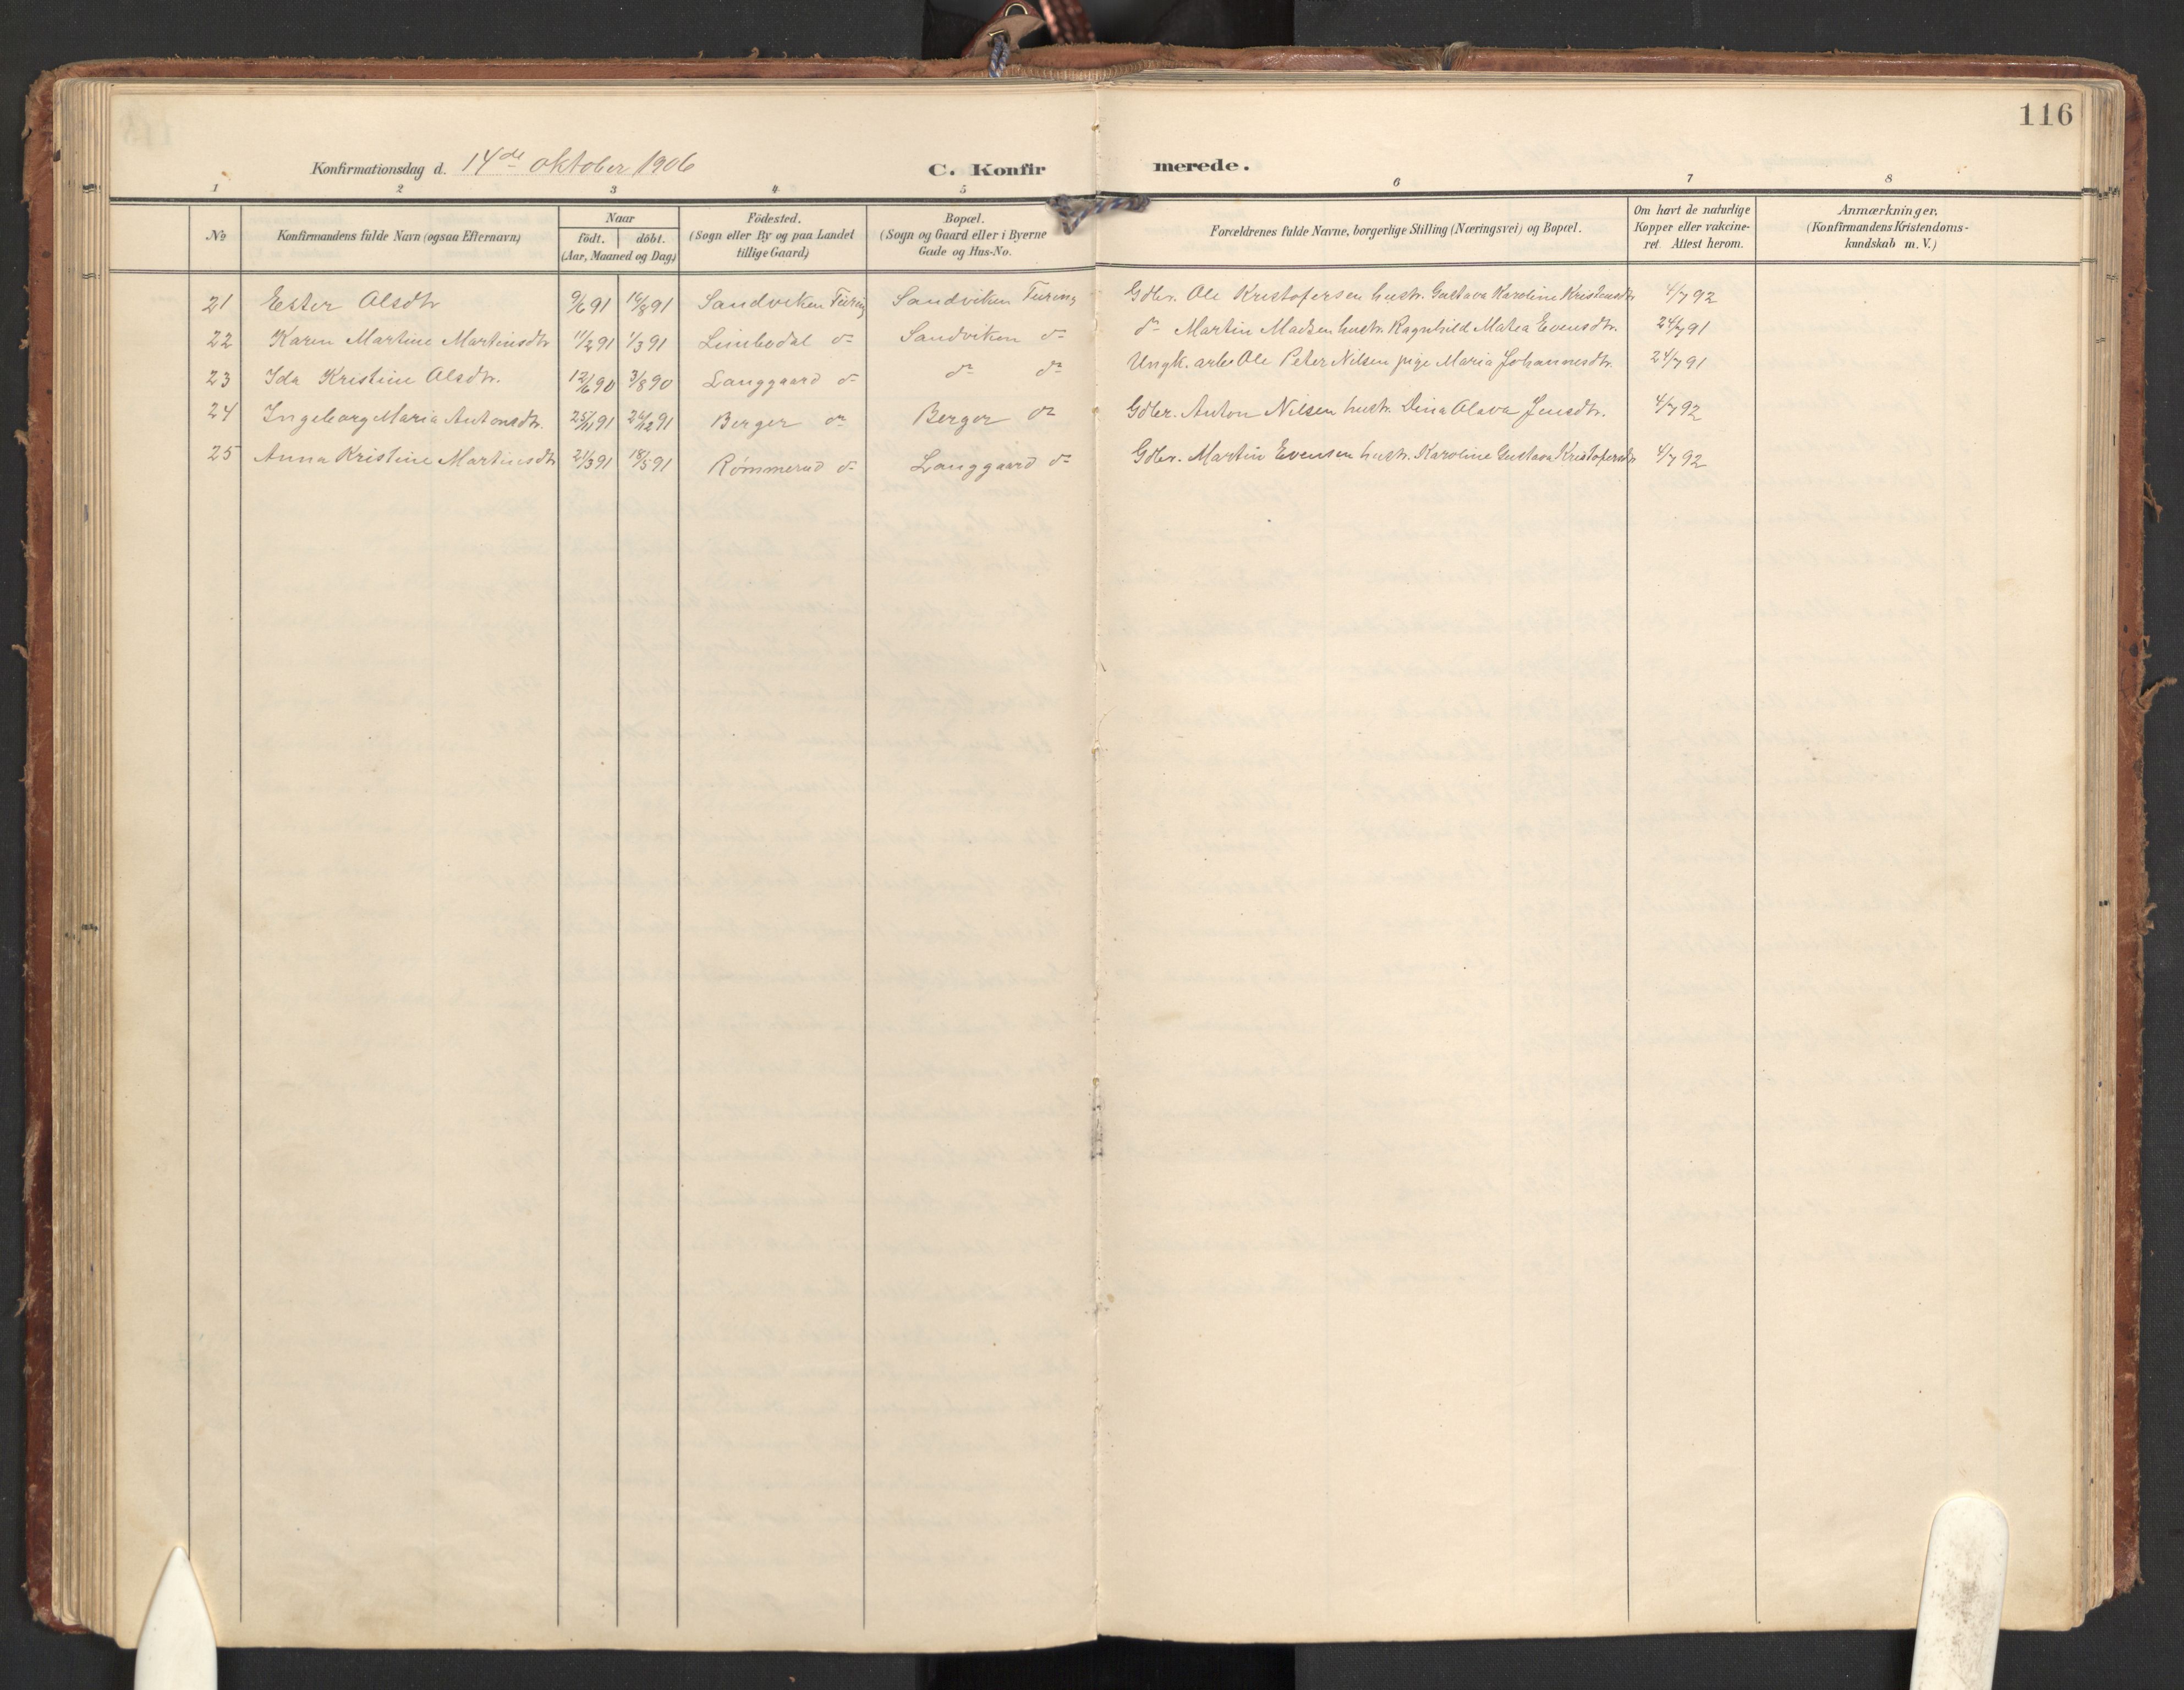 116
Konfirmationsdag d. 14de oktober 1906 C. Konfirmerede.
1 2 3 4 5 6 7 8
No Konfirmandens fulde Navn (ogsaa Efternavn) Naar født. døbt. (Aar, Maaned og Dag) Födested. (Sogn eller By og paa Landet tillige Gaard) Bopæl. (Sogn og Gaard eller i Byerne Gade og Hus-No. Forældrenes fulde Navne, borgerlige Stilling (Næringsvei) og Bopæl. Om havt de naturlige Kopper eller vakcineret Attest herom. Anmærkninger, (Konfirmandens Kristendomskundskab m. V.)
21 Ester Olsdtr 9/6 91 16/8 91 Sandviken Sandviken Gdbr. Ole Kristofersen hustr. Gustava Karoline Kristensdtr 4/7 92
22 Karen Martine Martinsdtr 11/2 91 1/3 91 Linibodal do Sandviken do do Martin Madsen hustr. Ragnhild Matea Evensdtr. 24/7 91
23 Ida Kristine Olsdtr. 12/6 90 3/8 90 Langgaard do do do Ungk. arb. Ole Peter Nilsen pige Maria Johannesdtr. 24/7 91
24 Ingeborg Maria Antonsdtr. 25/11 91 26/12 91 Berger do Berger do Gdbr. Anton Nilsen hustr. Dina Olava Jensdtr. 4/7 92
25 Anna Kristine Martinsdtr 21/3 91 18/5 91 Rømmerud do Langgaard do Gdbr. Martin Evensen hustr. Karoline Gustava Kristofersdtr 4/7 92